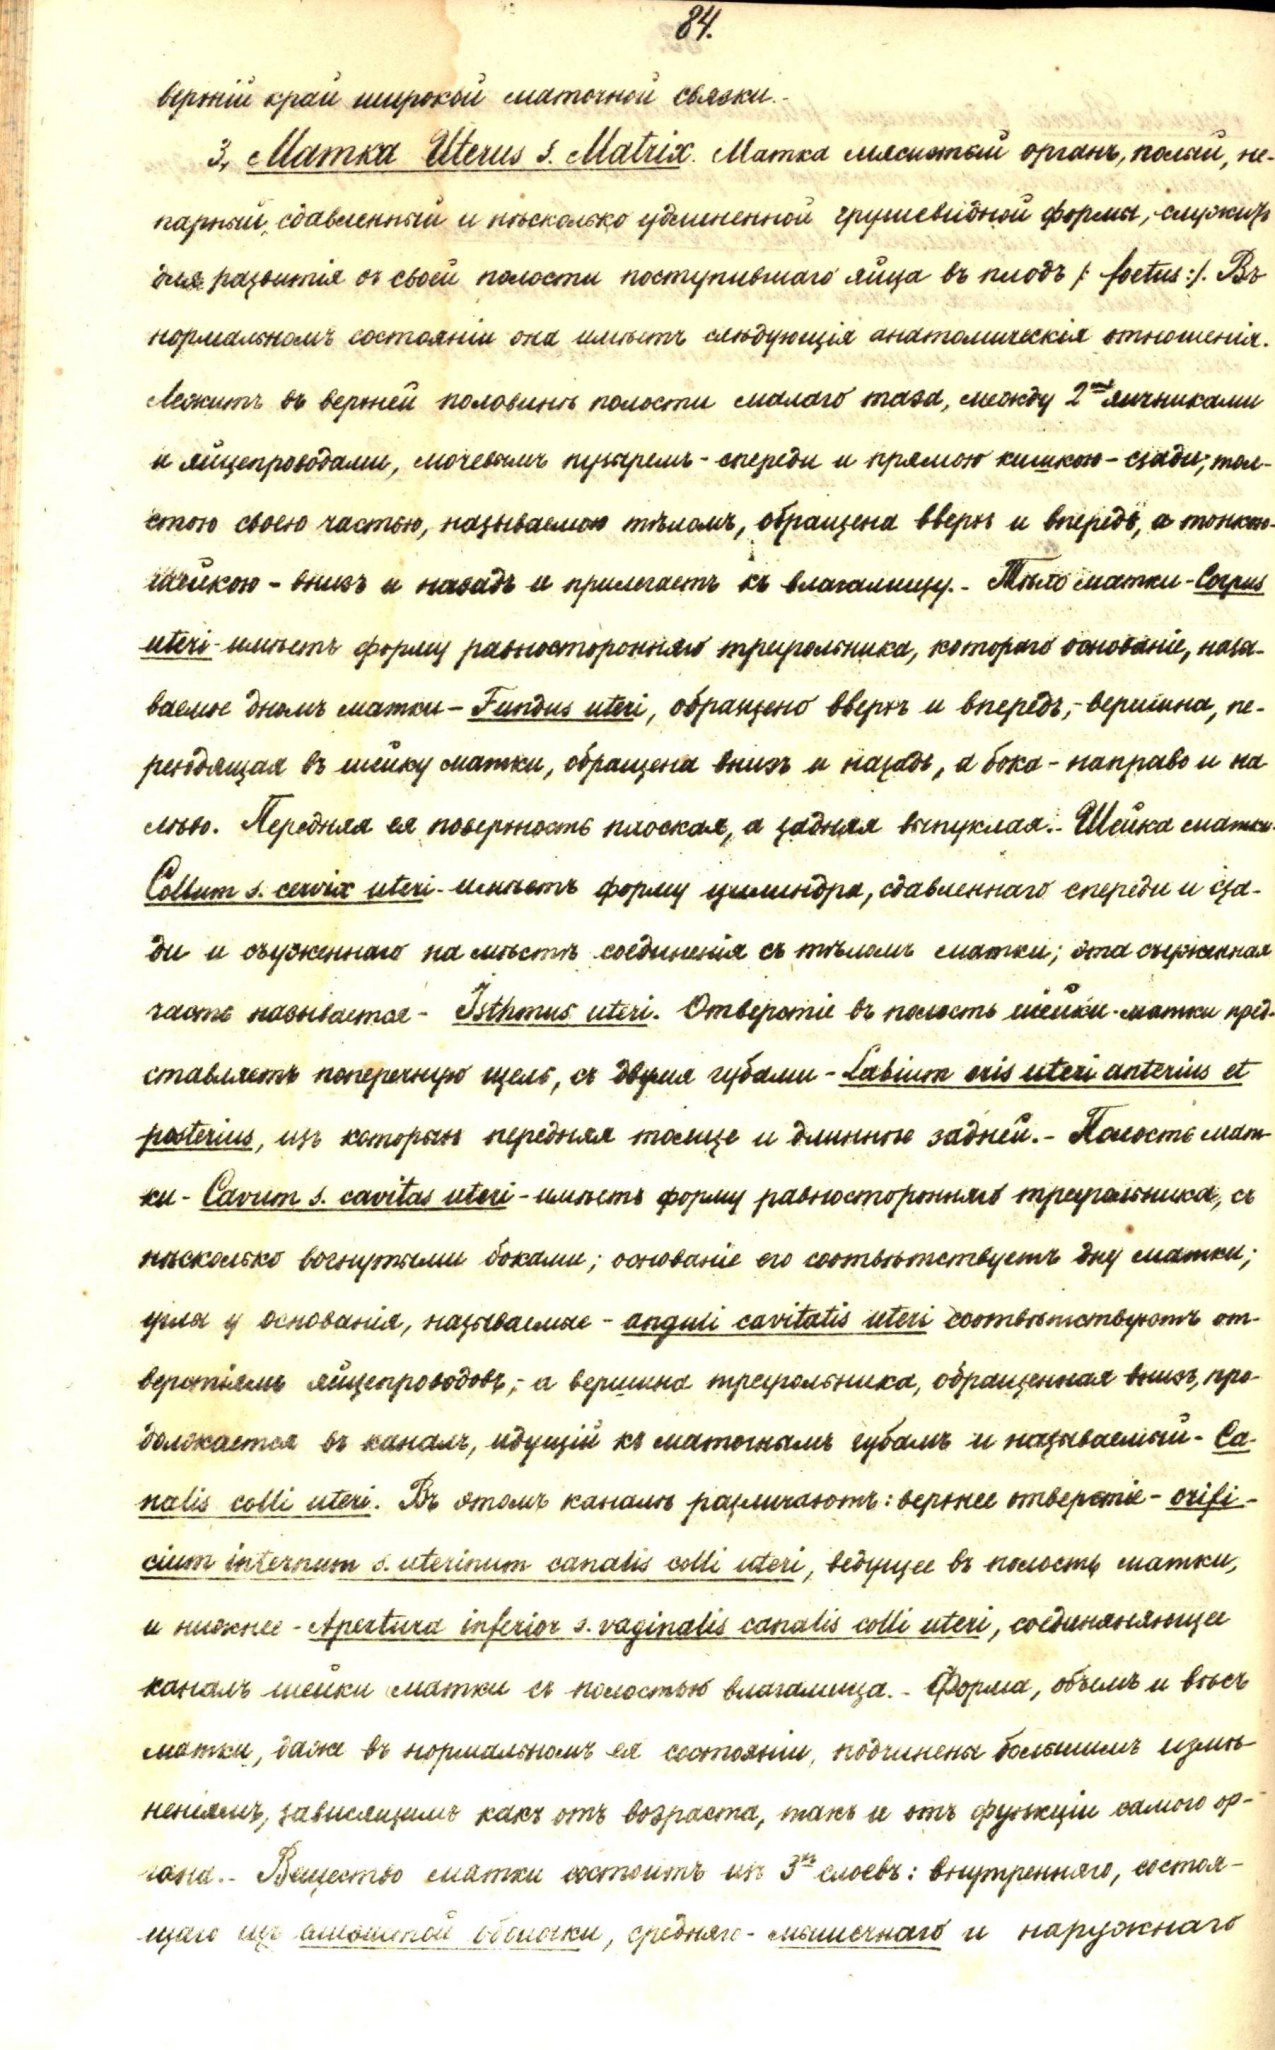 84.
верхній край широкой маточной связки.-
3, Матка Uterus s. Matrix. Матка мясистый органъ, полый, не-
парный, сдавленный и нѣсколько удлиненной грушевидной формы, служитъ
для развитія въ своей полости поступившаго яйца въ плодъ /: foetus:/. Въ
нормальномъ состояніи она имѣетъ слѣдующія анатомическія отношенія.
Лежитъ въ верхней половинѣ полости малаго таза, между 2мя яичниками
и яйцепроводами, мочевымъ пузыремъ - спереди и прямою кишкою - сзади; тол-
стою своею частью, называемою тѣломъ, обращена вверхъ и впередъ, а тонкою-
шейкою - внизъ и назадъ и прилегаетъ къ влагалищу.- Тѣло матки - Corpus
uteri - имѣетъ форму равносторонняго треугольника, котораго основаніе, назы-
ваемое дномъ матки - Fundus uteri, обращено вверхъ и впередъ, - вершина, пе-
реходящая въ шейку матки, обращена внизъ и назадъ, а бока - направо и на
лѣво. Передняя ея поверхность плоская, а задняя выпуклая.- Шейка матки-
Collum s. cervix uteri - имѣетъ форму цилиндра, сдавленнаго спереди и сза-
ди и съуженнаго на мѣстѣ соединенія съ тѣломъ матки; эта съуженная
часть называется - Isthmus uteri. Отверстіе въ полость шейки матки пред-
ставляетъ поперечную щель, съ двумя губами - Labium oris uteri anterius et
posterius, изъ которыхъ передняя толще и длиннѣе задней.- Полость мат-
ки - Cavum s. cavitas uteri - имѣетъ форму равносторонняго треугольника, съ
нѣсколько вогнутыми боками; основаніе его соотвѣтствуетъ дну матки;
углы у основанія, называемые - anguli cavitatis uteri соотвѣтствуютъ от-
верстіямъ яйцепроводовъ, - а вершина треугольника, обращенная внизъ, про-
должается въ каналъ, идущій къ маточнымъ губамъ и называемый - Ca-
nalis colli uteri. Въ этомъ каналѣ различаютъ: верхнее отверстіе - orifi-
cium internum s. uterinum canalis colli uteri, ведущее въ полость матки,
и нижнее - Apertura inferior s. vaginalis canalis colli uteri, соединяняющее
каналъ шейки матки съ полостью влагалища.- Форма, объемъ и вѣсъ
матки, даже въ нормальномъ ея состояніи, подчинены большимъ измѣ-
неніямъ, зависящимъ какъ отъ возраста, такъ и отъ функціи самого ор-
гана.- Вещество матки состоитъ изъ 3хъ слоевъ: внутренняго, состоя-
щаго изъ слизистой оболочки, средняго - мышечнаго и наружнаго